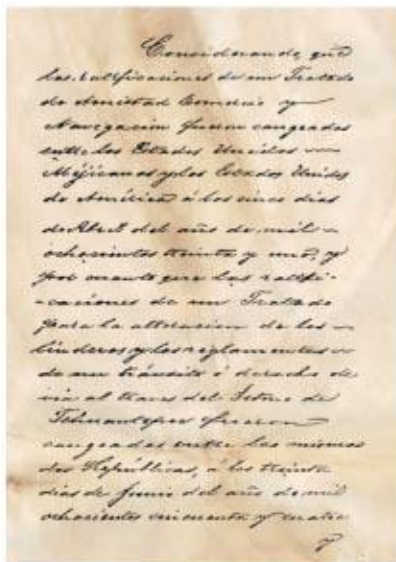 Considerando que
las ratificaciones de un Tratado
de Amistad Comercio y
Navegación fueron cangeadas
entre los Estados Unidos
Méjicanos y los Estados Unidos
de América á los cinco dias
de Abril del año de mil
ochocientos treinta y uno, y
por cuanto que las ratifi-
-caciones de un Tratado
para la alteracion de los
linderos y los reglamentos
de un tránsito ó derecho de
via al traves del Istmo de
Tehuantepec fueron
cangeadas entre las mismas
dos Repúblicas, a los treinta
dias de Junio del año de mil
ochocientos cincuenta y cuatro
y